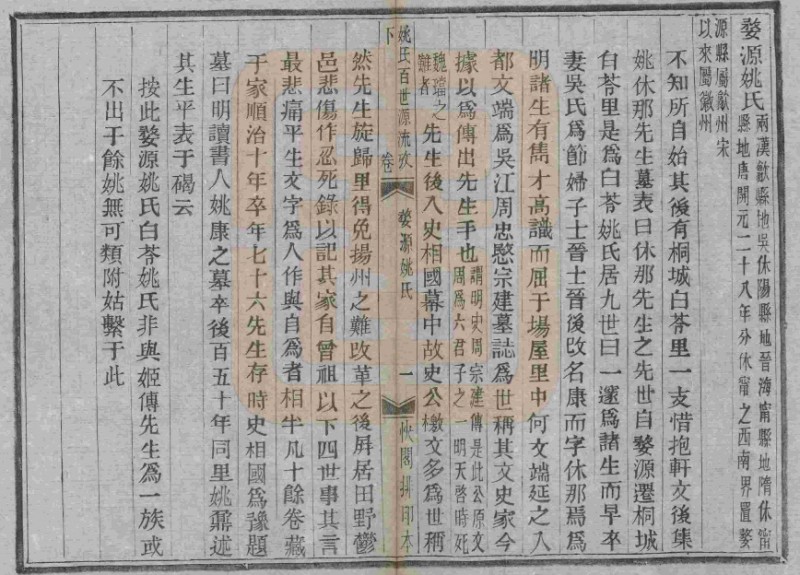 婺源姚氏兩漢歙縣地吳休陽縣地晉海甯縣地隋休甯
縣地唐開元二十八年分休甯之西南界置婺
源縣屬歙州宋
以來屬徽州
不知所自始其後有桐城白苓里一支惜抱軒文後集
姚休那先生墓表曰休那先生之先世自婺源遷桐城
白苓里是爲白苓姚氏居九世曰一遴爲諸生而早卒
妻吳氏爲節婦子士晉士晉後改名康而字休那焉爲
明諸生有雋才高識而屈于場屋里中何文端延之入
都文端爲吳江周忠愍宗建墓誌爲世稱其文史家今
據以爲傳出先生手也謂明史周宗建傳是此公原文
周爲六君子之一明天啓時死
魏璫之
難者
先生後入史相國幕中故史公檄文多爲世稱
姚氏百世源流攷
下
卷二
婺源姚氏
一
快閣排印本
然先生旋歸里得免揚州之難改革之後屏居田野鬱
邑悲傷作忍死錄以記其家自曾祖以下四世事其言
最悲痛平生文字爲人作與自爲者相半凡十餘卷藏
于家順治十年卒年七十六先生存時史相國爲豫題
墓曰明讀書人姚康之墓卒後百五十年同里姚鼐述
其生平表于碣云
按此婺源姚氏白苓姚氏非與姬傳先生爲一族或
不出于餘姚無可類附姑繫于此